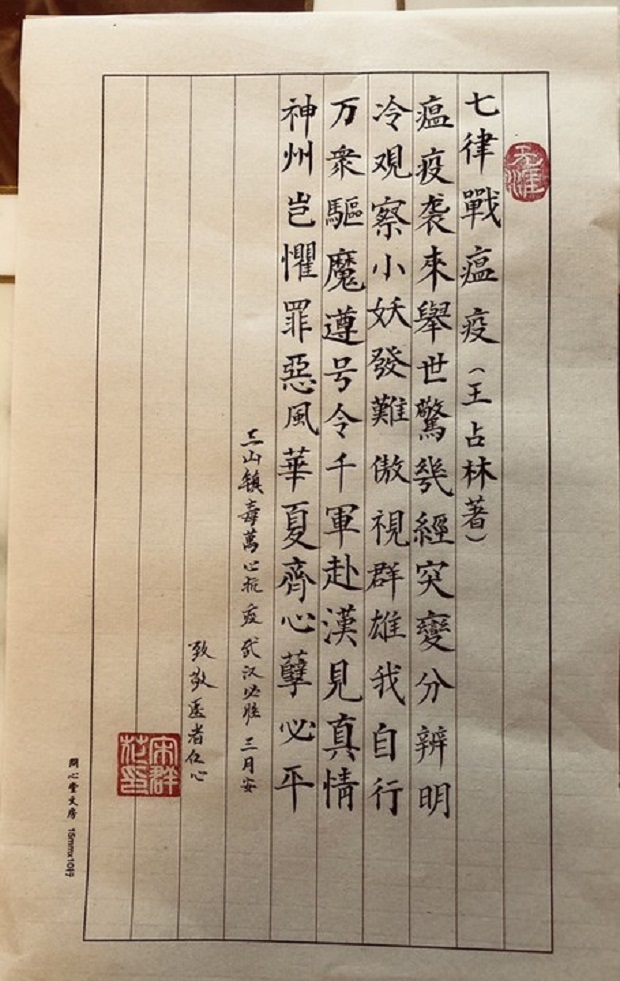 七律戰瘟疫（王占林著）
瘟疫袭來舉世驚幾經突變分辨明
冷观察小妖發難傲視群雄我自行
万衆驅魔遵号令千軍赴漢見真情
神州岂懼罪惡風華夏齊心孽必平
三山镇毒萬心抗疫武汉必胜三月安
致敬医者仁心
宋群
問心堂文房 15mmx10行